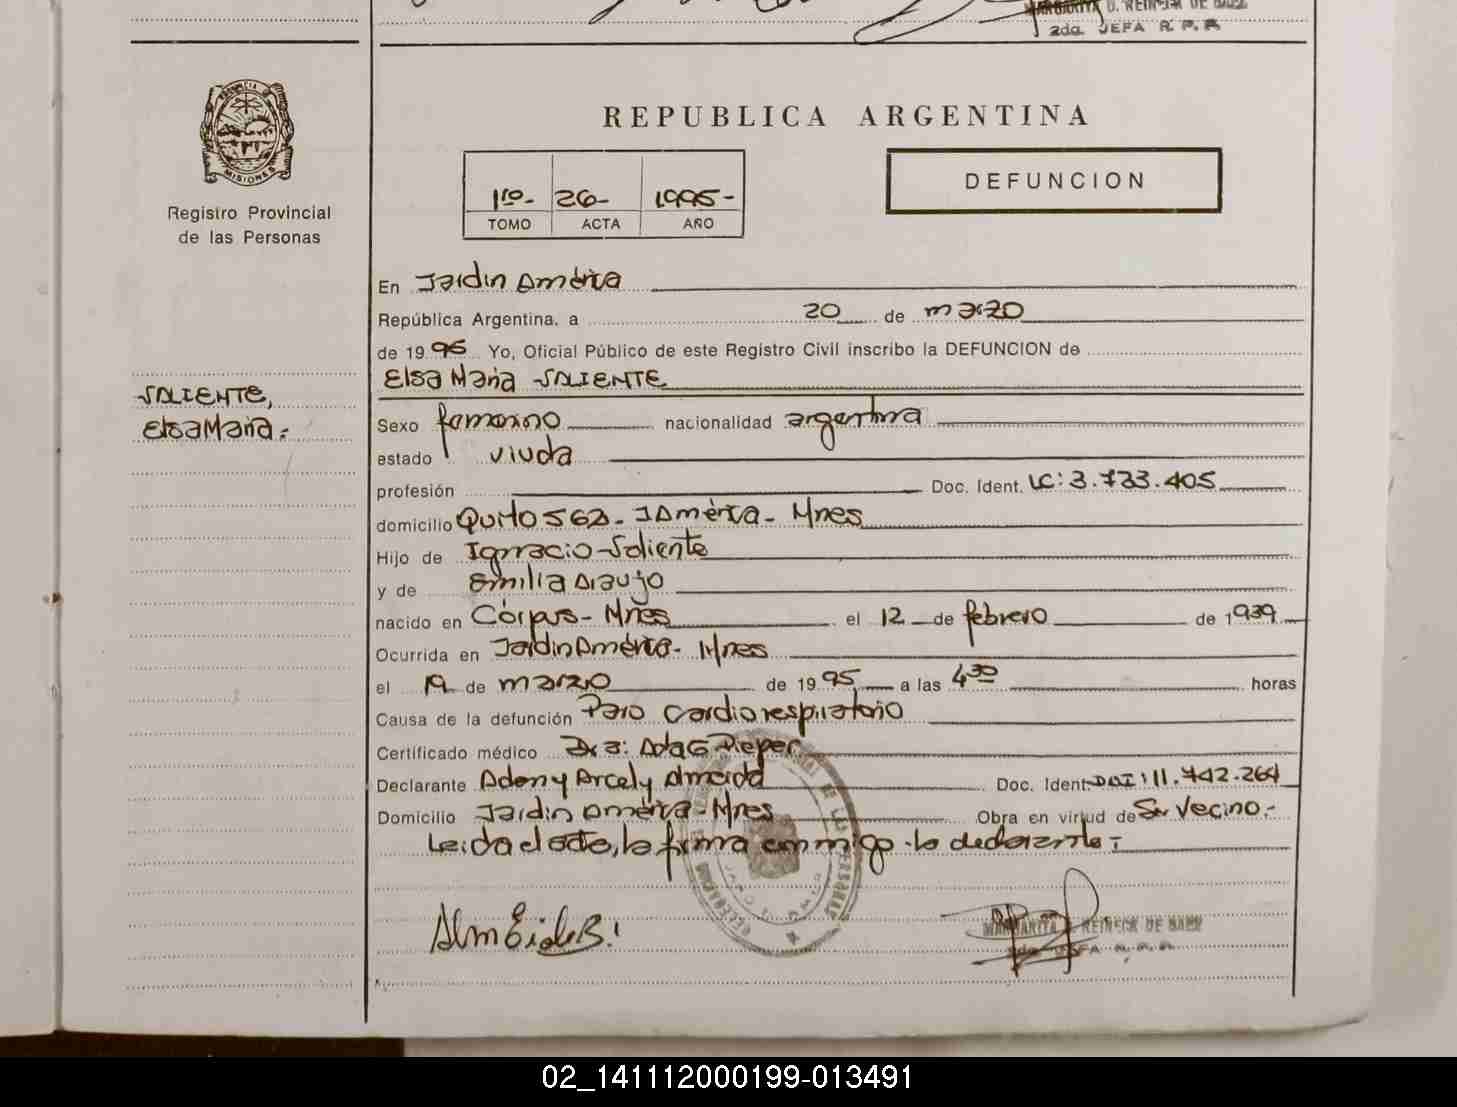 MARGARITA D. REINECK DE BAEZ
2da. JEFA R. P. P.
PROVINCIA
MISIONES
Registro Provincial
de las Personas
REPUBLICA ARGENTINA
DEFUNCION
1ro- 26- 1995-
TOMO ACTA AÑO
En Jardin América
República Argentina, a 20 de marzo
de 1995 Yo, Oficial Público de este Registro Civil inscribo la DEFUNCION de
Elsa Maria SALIENTE
SALIENTE,
Elsa Maria.-
Sexo femenino nacionalidad argentina
estado viuda
profesión Doc. Ident. LC: 3.733.405
domicilio Quito 562- JAmérica- Mnes
Hijo de Ignacio Saliente
y de Emilia Araujo
nacido en Córpus- Mnes el 12 de febrero de 1939
Ocurrida en Jardin América- Mnes
el 19 de marzo de 1995 a las 4 30 horas
Causa de la defunción Paro cardiorespiratorio
Certificado médico Dra: Ada G Pieper
Declarante Adony Arcely Almeida Doc. Ident. DNI: 11.742.264
Domicilio Jardin América- Mnes Obra en virtud de Su Vecino.-
Leida el acta, la firma conmigo la declarante.-
MARGARITA D. REINECK DE BAEZ
2da. JEFA R. P. P.
02_141112000199-013491